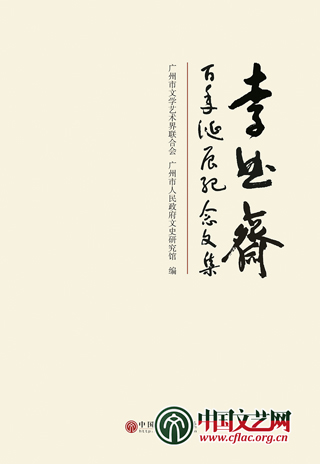 李曲斋
百年诞辰纪念文集
广州市文学艺术界联合会 广州市人民政府文史研究馆 编
中国
http://www.
中国文艺网
www.cflac.org.cn